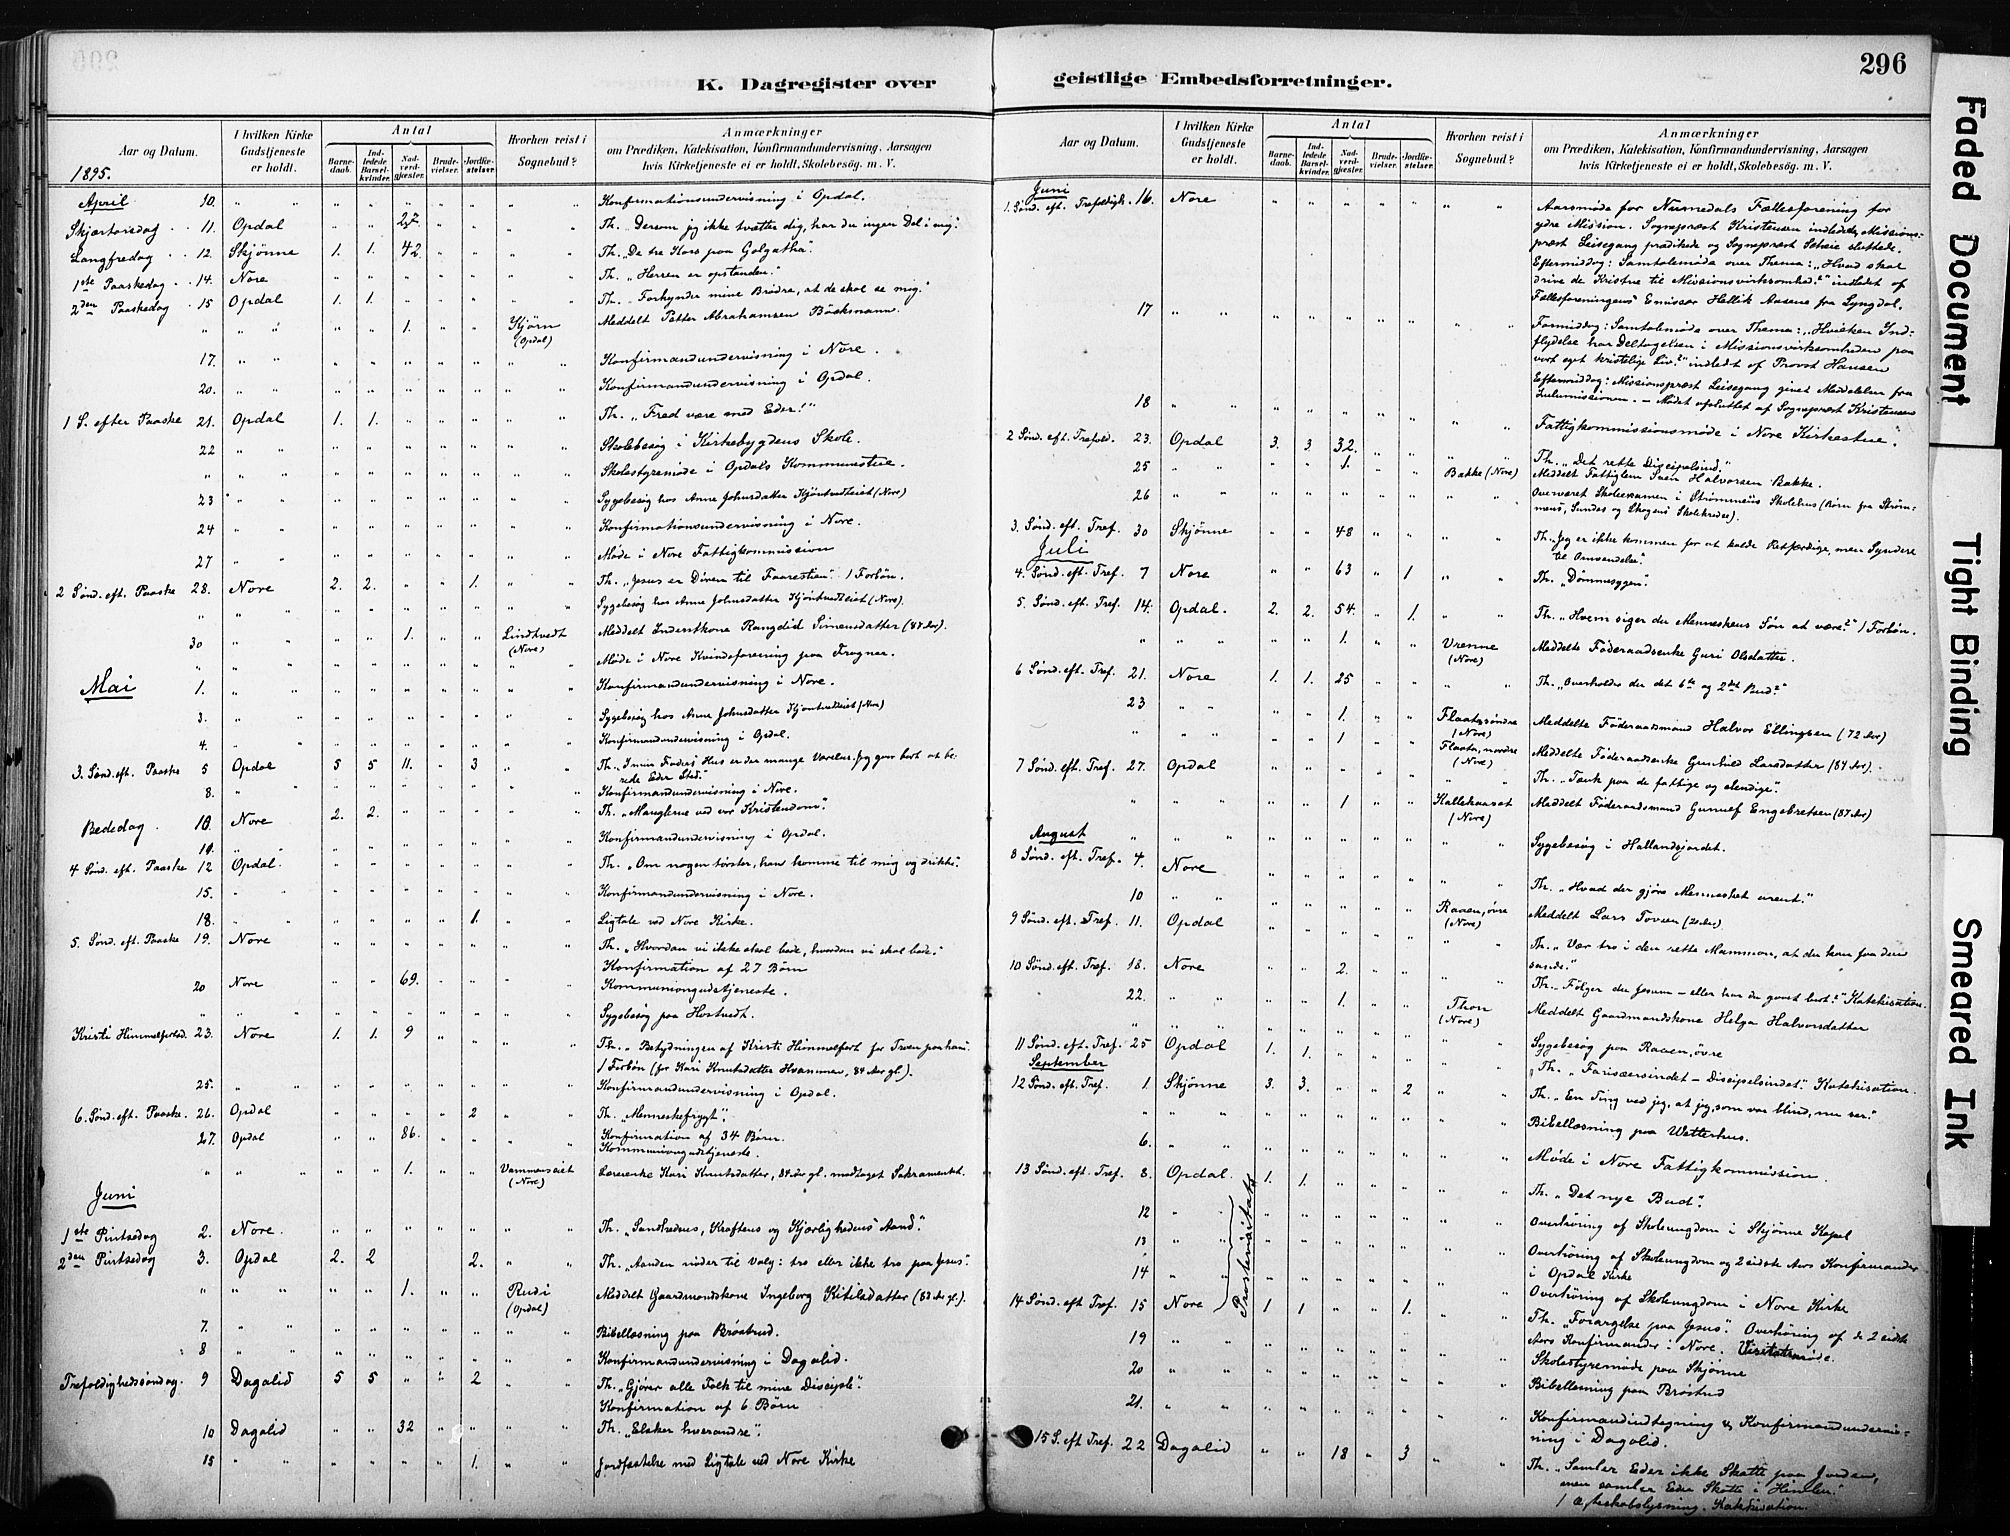 296
K. Dagregister over geistlige Embedsforretninger.
Aar og Datum.
I hvilken Kirke Gudstjeneste er holdt.
Antal
Barnedaab.
Indledede Barselkvinder.
Nadverdgjester.
Brudevielser.
Jordfæstelser.
Hvorhen reist i Sognebud?
Anmærkninger
om Prædiken, Katekisation, Konfirmandundervisning, Aarsagen
hvis Kirketjeneste ei er holdt, Skolebesøg. m. V.
1895.
April 10. " " " " " " " " " Konfirmationsundervisning i Opdal.
Skjærtorsdag 11. Opdal " " 27 " " " " Th. „Dersom jeg ikke tvætter dig, har du ingen Del i mig."
Langfredag 12. Skjønne 1. 1. 42. " " " " Th. „De tre Kors paa Golgatha".
1ste Paaskedag 14. Nore " " " " " " " Th. „Herren er opstanden."
2den Paaskedag 15 Opdal 1. 1. " " " " " Th. „Forkynder mine Brødre, at de skal se mig."
" " " " " 1. " " Kjørn (Opdal) Meddelt Petter Abrahamsen Böckmann.
17. " " " " " " " " " Konfirmandundervisning i Nore.
20. " " " " " " " " " Konfirmandundervisning i Opdal.
1 S. efter Paaske 21. Opdal 1. 1. " " " " " Th. „Fred være med Eder!"
22 " " " " " " " " " Skolebesøg i Kirkebygdens Skole.
" " " " " " " " " " Skolestyremøde i Opdals Kommunestue.
23 " " " " " " " " " Sygebesøg hos Anne Johnsdatter Kjøntvedteiet (Nore)
24 " " " " " " " " " Konfirmationsundervisning i Nore.
27 " " " " " " " " " Møde i Nore Fattigkommission
2 Sønd. eft. Paaske 28. Nore 2. 2. " " 1. " " Th. „Jesus er Døren til Faarestien". 1 Forbøn.
" " " " " " " " " " Sygebesøg hos Anne Johnsdatter Kjøntvedteiet (Nore).
30 " " " " 1. " " Lindtvedt (Nore) Meddelt Inderstkone Rangdid Simensdatter (87 Aar).
" " " " " " " " " " Møde i Nore Kvindeforening paa Frogner.
Mai 1. " " " " " " " " " Konfirmandundervisning i Nore.
3. " " " " " " " " " Sygebesøg hos Anne Johnsdatter Kjøntvedteiet (Nore)
4. " " " " " " " " " Konfirmandundervisning i Opdal.
3. Sønd. eft. Paaske 5 Opdal 5 5 11. " 3 " " Th. „I min Faders Hus er der mange Værelser. Jeg gaar bort at be-
rede Eder Sted."
8. " " " " " " " " " Konfirmandundervisning i Nore.
Bededag. 10. Nore 2. 2. " " " " " Th. „Manglerne ved vor Kristendom".
11. " " " " " " " " " Konfirmandundervisning i Opdal.
4 Sønd. eft. Paaske 12 Opdal. " " " " " " " Th. „Om nogen tørster, han komme til mig og drikke".
15. " " " " " " " " " Konfirmandundervisning i Nore.
18. " " " " " " 1. " " Ligtale ved Nore Kirke.
5. Sønd. eft. Paaske 19. Nore " " " " " " " Th. „Hvordan vi ikke skal bede, hvordan vi skal bede."
Konfirmation af 27 Børn
20 Nore " " 69. " " " " Kommuniongudstjeneste.
" " " " " " " " " " Sygebesøg paa Hostvedt.
Kristi Himmelfartsd. 23. Nore 1. 1. 9 " " " " Th. „Betydningen af Kristi Himmelfart for Troen paa ham".
1 Forbøn (for Kari Knutsdatter Hvammen, 84 Aar gl.).
25. " " " " " " " " " Konfirmandundervisning i Opdal.
6. Sønd. eft. Paaske. 26. Opdal " " " " 2 " " Th. „Menneskefrygt".
27. Opdal " " 86. " " " " Konfirmation af 34 Børn.
Kommuniongudstjeneste.
" " " " " 1. " " Vammenseiet (Nore) Lærerenke Kari Knutsdatter, 84 Aar gl., modtaget Sakramentet.
Juni
1ste Pintsedag 2. Nore. " " " " " " " Th. „Sandhedens, Kraftens og Kjærlighedens Aand".
2den Pintsedag 3. Opdal 2. 2 " " 2. " " Th. „Aanden nøder til Valg: tro eller ikke tro paa Jesus".
" " " " " 1. " " Rudi (Opdal) Meddelt Gaardmandskone Ingeborg Kittilsdatter (83 Aar gl.).
7. " " " " " " " " " Bibellæsning paa Brøstrud.
8 " " " " " " " " " Konfirmandundervisning i Dagalid.
Trefoldighedssøndag. 9 Dagalid 5 5 " " 2 " " Th. „Gjører alle Folk til mine Disciple".
Konfirmation af 6 Børn
10 Dagalid " " 32 " " " " Th. „Elsker hverandre".
15 " " " " " " 1. " " Jordfæstelse med Ligtale ved Nore Kirke
Aar og Datum.
I hvilken Kirke Gudstjeneste er holdt.
Antal
Barnedaab.
Indledede Barselkvinder.
Nadverdgjester.
Brudevielser.
Jordfæstelser.
Hvorhen reist i Sognebud?
Anmærkninger
om Prædiken, Katekisation, Konfirmandundervisning, Aarsagen
hvis Kirketjeneste ei er holdt, Skolebesøg. m. V.
Juni
1. Sønd. eft. Trefoldigh. 16. Nore " " " " " " " Aarsmøde for Numedals Fællesforening for
ydre Mission. Sogneprest Kristensen indledede, Missions-
præst Leisegang prædikede og Sogneprest sluttede.
Eftermiddag: Samtalemøde over Thema: „Hvad skal
drive de Kristne til Missionsvirksomhed?" indledet af
Fællesforeningens Emissær Hellik Aasens fra Lyngdal.
17 " " " " " " " " " Formiddag: Samtalemøde over Thema: „Hvilken Ind-
flydelse har Deltagelsen i Missionsvirksomheden paa
vort eget kristelige Liv?" indledet af Provst Hansen
Eftermiddag: Missionsprest Leisegang givet Meddelelser fra
Zulumissionen. – Mødet afsluttet af Sogneprest Kristensen
18 " " " " " " " " " Fattigkommissionsmøde i Nore Kirkestue.
2 Sønd. eft. Trefold. 23. Opdal 3. 3. 32. " " " " Th. „Det rette Discipelsind."
25 " " " " 1. " " Bakke (Nore) Meddelt Fattiglem Sven Halvorsen Bakke.
26 " " " " " " " " " Overværet Skoleexamen i Strømmens Skolehus (Børn fra Strøm-
mens, Sundes og Skogens Skolekredse).
3. Sønd. eft. Tref. 30 Skjønne " " 48 " " " " Th. „Jeg er ikke kommen for at kalde Retfærdige, men Syndere
til Omvendelse".
Juli
4. Sønd. eft. Tref. 7 Nore " " 63 " 1 " " Th. „Dømmesygen".
5. Sønd. eft. Tref. 14. Opdal. 2. 2. 54. " 1. " " Th. „Hvem siger du Menneskens Søn at være?" 1 Forbøn.
" " " " " 1. " " Vrenne (Nore) Meddelte Føderaadsenke Guri Olsdatter.
6 Sønd. eft. Tref. 21. Nore 1. 1. 25 " " " " Th. „Overholder du det 6te og 2det Bud?"
23 " " " " 1. " " Flaatasøndre (Nore) Meddelte Føderaadsmand Halvor Ellingsen (72 Aar)
" " " " " 1 " " Flaata, nordre (Nore) Meddelte Føderaadsenke Gunhild Larsdatter (84 Aar).
7 Sønd. eft. Tref. 27. Opdal " " " " " " " Th. „Tænk paa de fattige og elendige".
" " " " " 1 " " Kallehaaset (Nore) Meddelt Føderaadsmand Gunnulf Engebretsen (87 Aar)
August " " " " " " " " " " Sygebesøg i Hallandsjordet.
8 Sønd. eft. Tref. 4. Nore " " " " " " " Th. „Hvad der gjøre Mennesket urent."
10 " " " " " " " Raaen, øvre (Nore) Meddelt Lars Toven (20 Aar)
9 Sønd. eft. Tref. 11. Opdal " " " " " " " Th. „Vær tro i den rette Mammon, at du kan faa den
sande."
10 Sønd. eft. Tref. 18. Nore " " 2. " " " " Th. – Følger du Jesum – eller har du gaaet bort?" Katekisation.
22. " " " " 1. " " Thon (Nore) Meddelt Gaardmandskone Helga Halvorsdatter
" " " " " " " " " " Sygebesøg paa Raaen, øvre
11 Sønd. eft. Tref. 25 Opdal 1. 1. " " " " " Th. „Farisæersindet – Discipelsindet." Katekisation.
September
12 Sønd. eft. Tref. 1 Skjønne 3. 3. " " 2 " " Th. „En Ting ved jeg, at jeg, som var blind, nu ser."
" " " " " " " " " " Bibellæsning paa Wetterhus.
6. " " " " " " " " " Møde i Nore Fattigkommission.
13 Sønd. eft. Tref. 8. Opdal. 1. 1. " " " " " Th. „Det nye Bud".
Prostevisitats
12 " " " " " " " " " Overhøring af Skoleungdom i Skjønne Kapel
13 " " " " " " " " " Overhøring af Skoleungdom og 2 sidste Aars Konfirmander
i Opdal Kirke
14 " " " " " " " " " Overhøring af Skoleungdom i Nore Kirke
14 Sønd. eft. Tref. 15 Nore 1 1 " " 1. " " Th. „Forargelse paa Jesus". Overhøring af de 2 sidste
Aars Konfirmander i Nore. Visitatsmøde.
19 " " " " " " " " " Skolestyremøde paa Skjønne
20 " " " " " " " " " Bibellæsning paa Brøstrud
21. " " " " " " " " " Konfirmandindtegning & Konfirmandundervis-
ning i Dagalid.
15 S. eft. Tref. 22 Dagalid " " 18 " 3 " " Th. „Samler Eder ikke Skatte paa Jorden,
men samler Eder Skatte i Himlen."
Katekisation.
Faded Document
Tight Binding
Smeared Ink